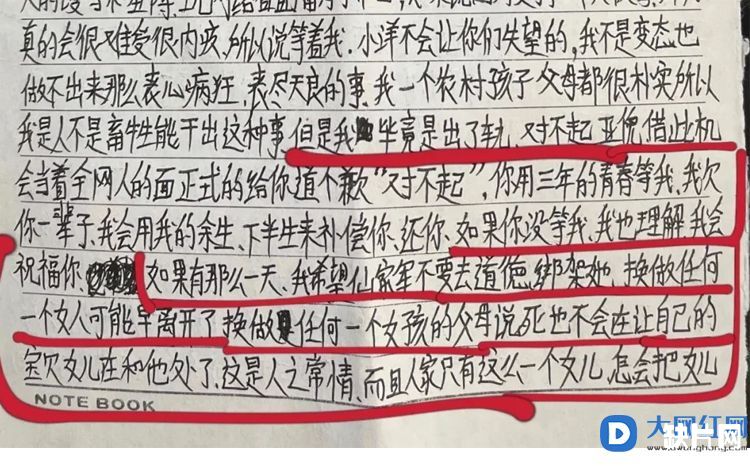 真的会很难受很内疚,所以说等着我.小洋不会让你们失望的,我不是变态也
做不出来那么丧心病狂、丧尽天良的事.我一个农村孩子父母都很朴实所以
我是人不是畜牲能干出这种事但是我毕竟是出了轨、对不起亚倪借此机
会当着全网人的面正式的给你道个歉"对不起",你用三年的青春等我,我欠
你一辈子、我会用我的余生、下半生来补偿你、还你、如果你没等我、我也理解我会
祝福你、如果有那么一天、我希望仙家军不要去道德绑架她、换做任何
一个女人可能早离开了换做任何一个女孩的父母说死也不会在让自己的
宝贝女儿在和他处了、这是人之常情、而且人家只有这么一个女儿,怎会把女儿
NOTE BOOK
D 大网红网
快片网